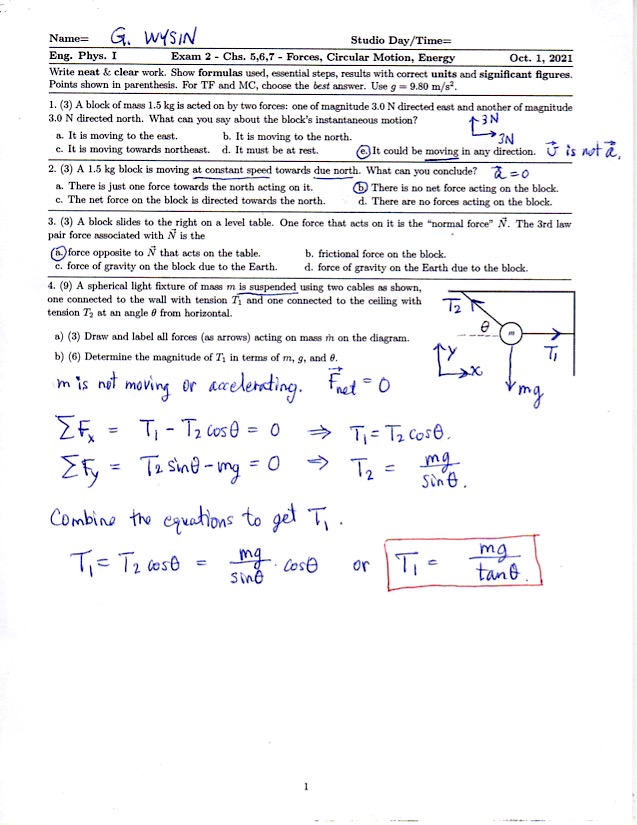 Name= G. WYSIN Studio Day/Time=
Eng. Phys. I Exam 2 - Chs. 5,6,7 - Forces, Circular Motion, Energy Oct. 1, 2021
Write neat & clear work. Show formulas used, essential steps, results with correct units and significant figures.
Points shown in parenthesis. For TF and MC, choose the best answer. Use g = 9.80 m/s².
1. (3) A block of mass 1.5 kg is acted on by two forces: one of magnitude 3.0 N directed east and another of magnitude
3.0 N directed north. What can you say about the block's instantaneous motion? 3N
3N
a. It is moving to the east. b. It is moving to the north.
c. It is moving towards northeast. d. It must be at rest. e. It could be moving in any direction. v⃗ is not a⃗.
2. (3) A 1.5 kg block is moving at constant speed towards due north. What can you conclude? a⃗ = 0
a. There is just one force towards the north acting on it. b. There is no net force acting on the block.
c. The net force on the block is directed towards the north. d. There are no forces acting on the block.
3. (3) A block slides to the right on a level table. One force that acts on it is the "normal force" N⃗. The 3rd law
pair force associated with N⃗ is the
a. force opposite to N⃗ that acts on the table. b. frictional force on the block.
c. force of gravity on the block due to the Earth. d. force of gravity on the Earth due to the block.
4. (9) A spherical light fixture of mass m is suspended using two cables as shown,
one connected to the wall with tension T₁ and one connected to the ceiling with
tension T₂ at an angle θ from horizontal.
T₂
θ
m
T₁
y
x
mg
a) (3) Draw and label all forces (as arrows) acting on mass m on the diagram.
b) (6) Determine the magnitude of T₁ in terms of m, g, and θ.
m is not moving or accelerating. F⃗net = 0
ΣFx = T₁ - T₂ cosθ = 0 ⇒ T₁ = T₂ cosθ.
ΣFy = T₂ sinθ - mg = 0 ⇒ T₂ = mg / sinθ.
Combine the equations to get T₁.
T₁ = T₂ cosθ = mg / sinθ · cosθ or T₁ = mg / tanθ.
1